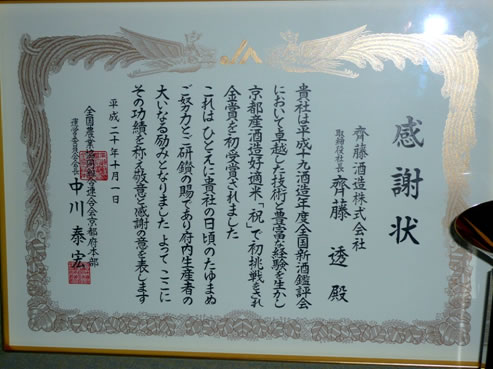 JA
感謝状
齊藤酒造株式会社
取締役社長 齊藤 透 殿
貴社は平成十九酒造年度全国新酒鑑評会
において卓越した技術と豊富な経験を生かし
京都産酒造好適米「祝」で初挑戦をされ
金賞を初受賞されました
これは ひとえに貴社の日頃のたゆまぬ
ご努力とご研鑽の賜であり府内生産者の
大いなる励みとなりました よって ここに
その功績を称え敬意と感謝の意を表します
平成二十年十月一日
全国農業協同組合連合会京都府本部
運営委員会会長 中川 泰宏